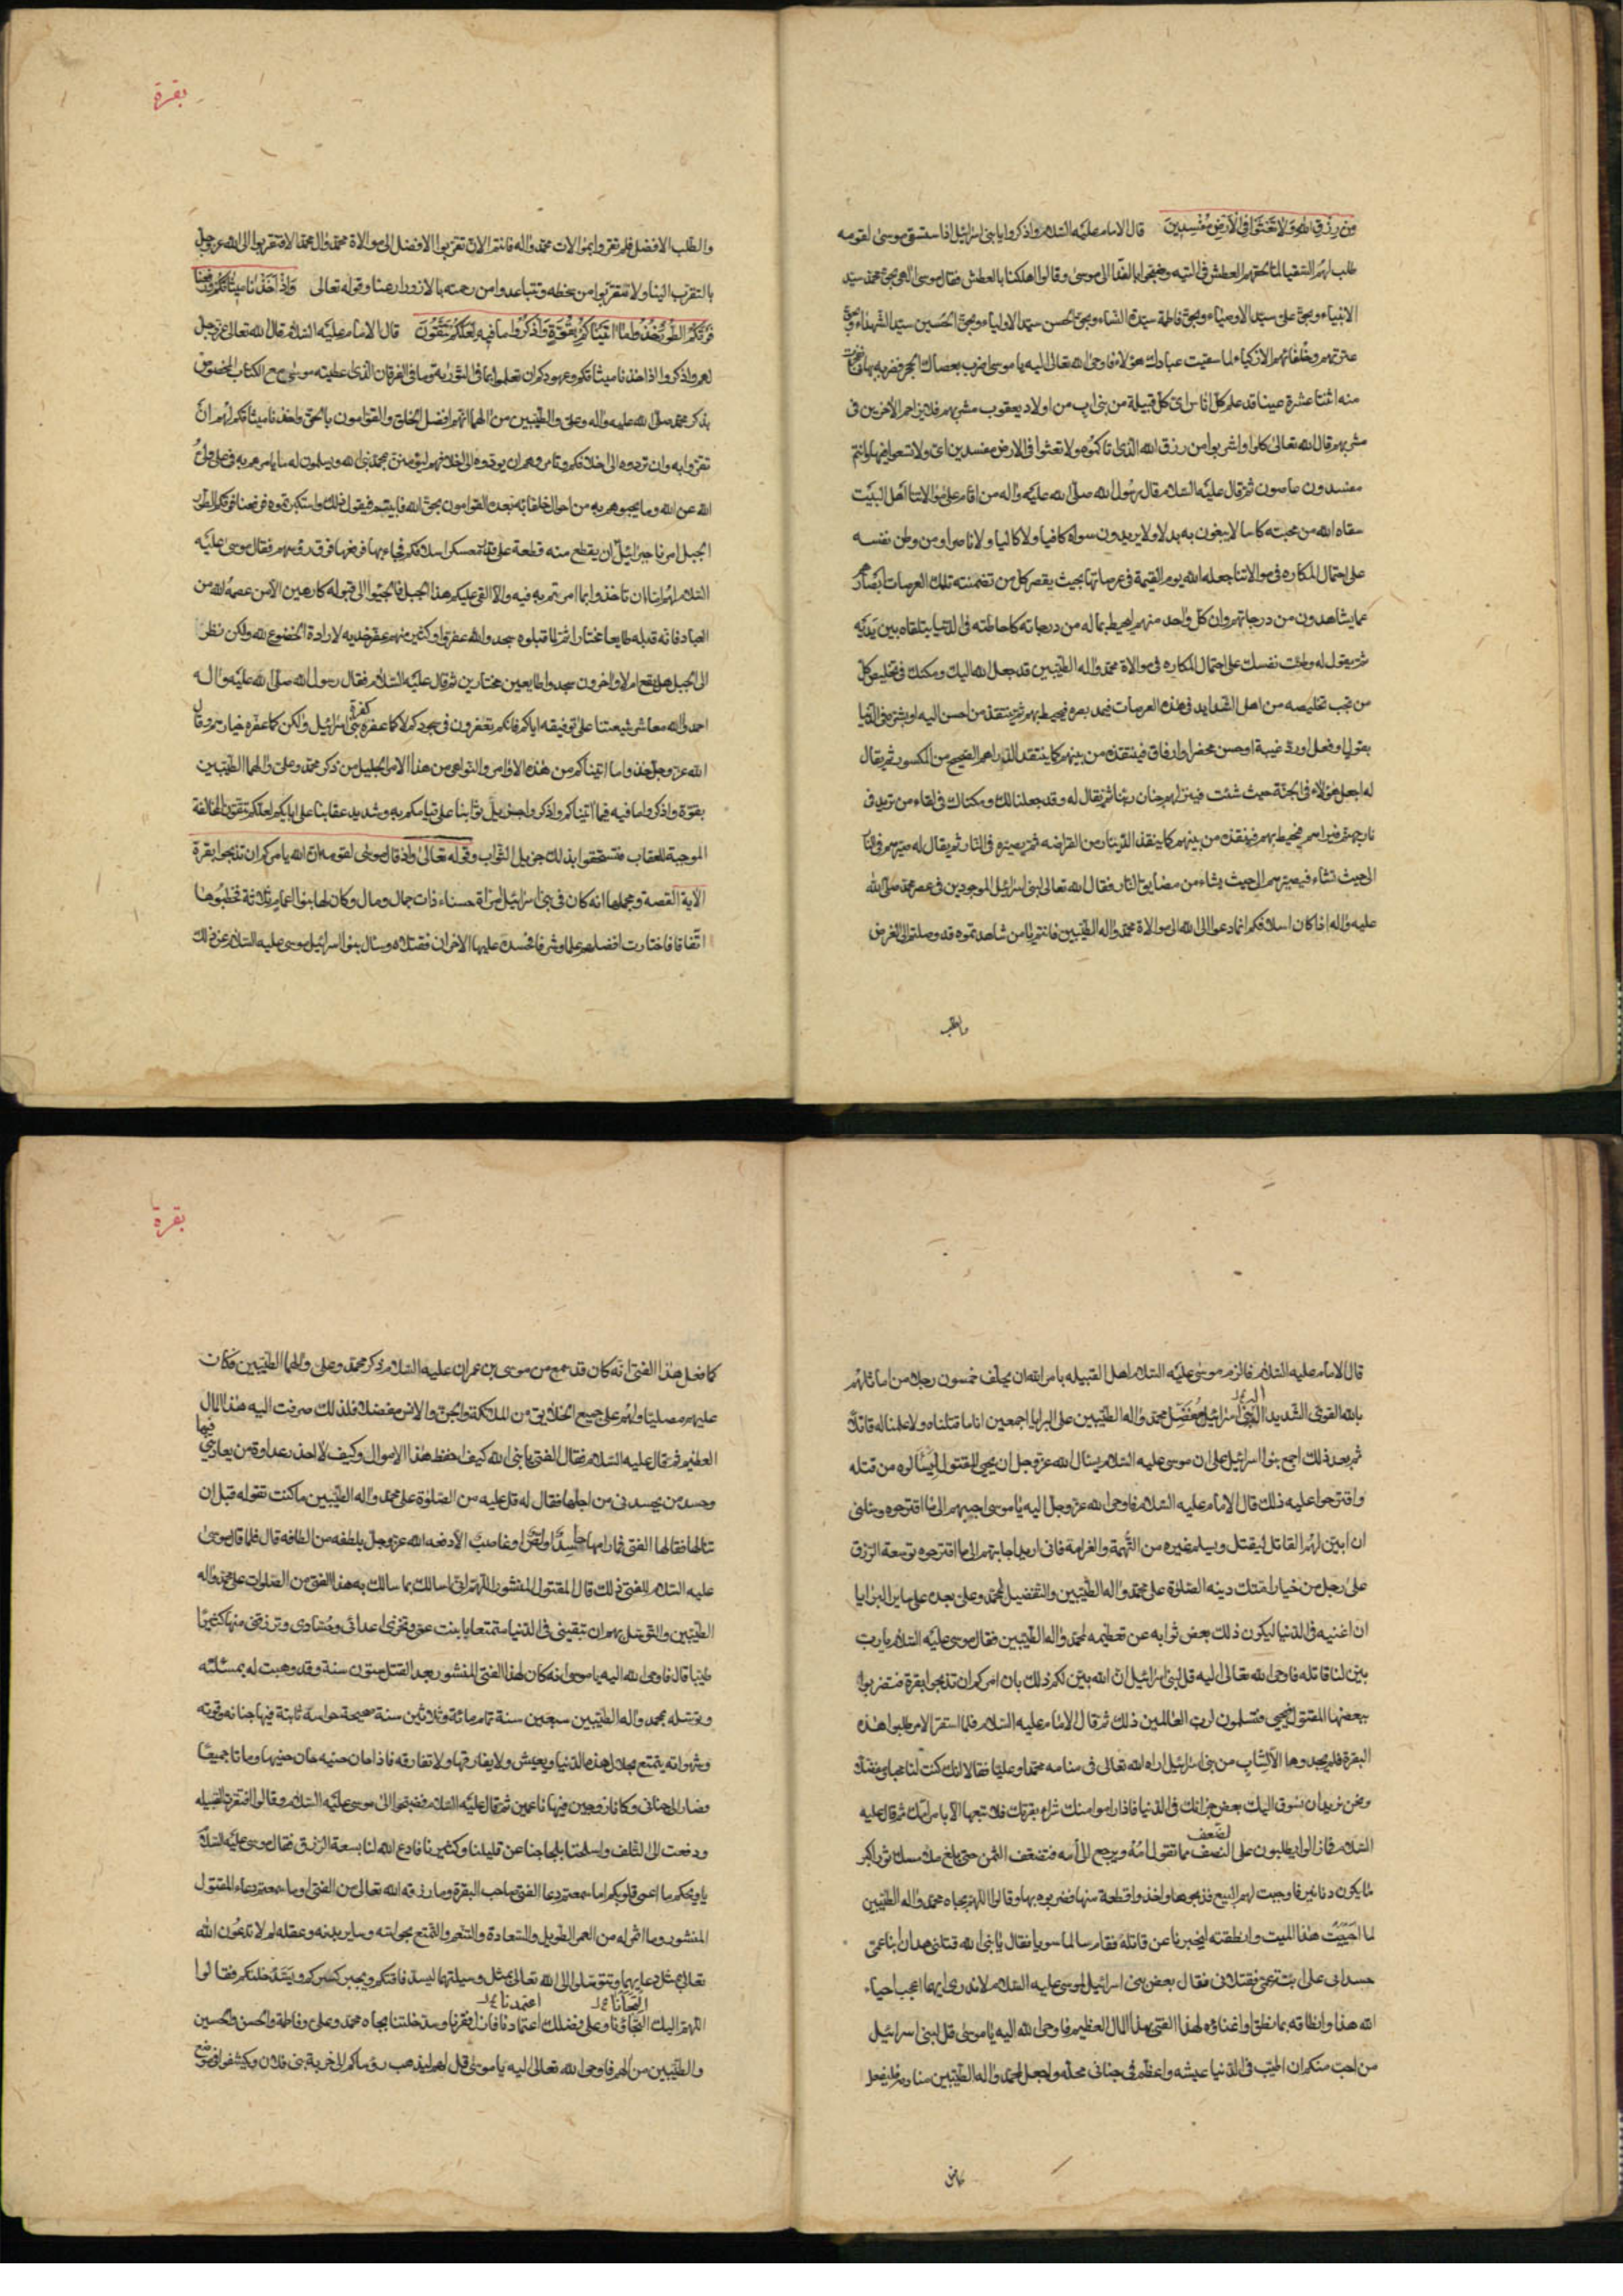 من رزق الله ولا تعثوا في الارض مفسدين قال الامام عليه السلام واذكروا يا بني اسرائيل اذا ستسقى موسى لقومه
طلب لهم السقيا لما لحقهم العطش في التيه وضجوا بالبكاء الى موسى وقالوا اهلكنا بالعطش فقال موسى الهي بحق محمد سيد
الانبياء وبحق علي سيد الاوصياء وبحق فاطمة سيدة النساء وبحق الحسن سيد الاولياء وبحق الحسين سيد الشهداء وبحق
عترتهم وخلفائهم الازكياء لما سقيت عبادك هؤلاء فاوحى الله تعالى اليه يا موسى اضرب بعصاك الحجر فضربه بها فانفجرت
منه اثنتا عشرة عينا قد علم كل اناس اي كل قبيلة من بني اب من اولاد يعقوب مشربهم فلا يزاحم الآخرين في
مشربهم قال الله تعالى كلوا واشربوا من رزق الله الذي تاكموه ولا تعثوا في الارض مفسدين اي ولا تسعوا فيها وانتم
مفسدون عاصون ثم قال عليه السلام قال رسول الله صلى الله عليه واله من اقام على موالاتنا اهل البيت
سقاه الله من محبته كاسا لا يبغون به بدلا ولا يريدون سواه كافيا ولا كاليا ولا ناصرا ومن وطن نفسه
على احتمال المكاره في موالاتنا جعله الله يوم القيمة في عرصاتها بحيث يقصر كل من تضمنته تلك العرصات ابصارهم
عما يشاهدون من درجاتهم وان كل واحد منهم ليحيط بما له من درجاته كاحاطته في الدنيا يتلقاه بين يديه
ثم يقول له وطنت نفسك على احتمال المكاره في موالاة محمد واله الطيبين قد جعل الله اليك ومكنك في تخليص كل
من تحب تخليصه من اهل الشدايد في هذه العرصات فيمد بصره فيحيط بهم ثم ينتقد من احسن اليه او بره في الدنيا
بقول او فعل او رد غيبة او حسن محضر او ارفاق فينتقده من بينهم كما ينتقد الدراهم الصحيح من المكسور ثم يقال
له اجعل هؤلاء في الجنة حيث شئت فينزلهم جنان ربنا ثم يقال له وقد جعلنا لك ومكناك في القاء من تريد في
نار جهنم فيراهم فيحيط بهم فينتقده من بينهم كما ينتقد الدينار من القراضه ثم يصيره في النار ثم يقال له صيرهم في النار
الى حيث تشاء فيصيرهم الى حيث يشاء من مضايق النار فقال الله تعالى لبني اسرائيل الموجودين في عصر محمد صلى الله
عليه واله اذا كان اسلافكم انما دعوا الى الله الى موالاة محمد واله الطيبين فانتم يا من شاهدتموه قد وصلتم الى الغرض
والطلب
بقرة
والطلب الافضل فلم تقروا بموالات محمد واله فانتم الان تقربوا الافضل الى موالاة محمد وال محمد الا فتقربوا الى الله عز وجل
بالتقرب الينا ولا تتقربوا من سخطه وتتباعدوا من رحمته بالازورار عنا وقوله تعالى واذ اخذنا ميثاقكم ورفعنا
فوقكم الطور خذوا ما اتيناكم بقوة واذكروا ما فيه لعلكم تتقون قال الامام عليه السلام قال الله تعالى عز وجل
لهم واذكروا اذا اخذنا ميثاقكم وعهودكم ان تعملوا بما في التورية وما في الفرقان الذي اعطيته موسى مع الكتاب المخصوص
بذكر محمد صلى الله عليه واله وعلي والطيبين من الهما انهم افضل الخلق والقوامون بالحق واخذنا ميثاقكم لهم ان
تقروا به وان تردوه الى اخلافكم وتامروهم ان يودوه الى اخلافهم ليؤمنن بمحمد نبي الله ويسلمون له ما يامرهم به في علي ولي
الله عن الله وما يخبرهم به من احوال خلفائه بعده القوامون بحق الله فابيتم قبول ذلك واستكبرتموه فرفعنا فوقكم الطور
الجبل امرنا جبرائيل ان يقطع منه قطعة على قدر معسكر اسلافكم فجاء بها فرفعها فوق رؤسهم فقال موسى عليه
السلام لهم اما ان تاخذوا بما امرتم به فيه والا القي عليكم هذا الجبل فالجئوا الى قبوله كارهين الا من عصمه الله من
العباد فانه قبله طايعا مختارا ثم لما قبلوه سجدوا لله عفروا وكثير منهم عفر خديه لا لارادة الخضوع لله ولكن نظر
الى الجبل هل يقع ام لا واخرون سجدوا طايعين مختارين ثم قال عليه السلام فقال رسول الله صلى الله عليه واله
احمدوا الله معاشر شيعتنا على توفيقه اياكم فانكم تعفرون في سجودكم لا كما عفره كفرة بني اسرائيل ولكن كما عفره خيارهم وقال
الله عز وجل خذوا ما اتيناكم من هذه الاوامر والنواهي من هذا الامر الجليل من ذكر محمد وعلي والهما الطيبين
بقوة واذكروا ما فيه فيما اتيناكم واذكروا جزيل ثوابنا على قيامكم به وشديد عقابنا على ابائكم لعلكم تتقون المخالفة
الموجبة للعقاب فتستحقوا بذلك جزيل الثواب وقوله تعالى واذ قال موسى لقومه ان الله يامركم ان تذبحوا بقرة
الآية القصة ومجملها انه كان في بني اسرائيل امراة حسناء ذات جمال ومال وكان لها بنوا اعمام ثلاثة فخطبوها
اتفاقا فاختارت افضلهم علما وشرفا فحسده عليها الاخران فقتلاه وسال بنوا اسرائيل موسى عليه السلام عن ذلك
قال الامام عليه السلام فالزم موسى عليه السلام اهل القبيله بامر الله ان يحلف خمسون رجلا من اماثلهم
بالله القوي الشديد اله بني اسرائيل مفضل محمد واله الطيبين على البرايا اجمعين انا ما قتلناه ولا علمنا له قاتلا
ثم بعد ذلك اجمع بنوا اسرائيل على ان موسى عليه السلام يسال الله عز وجل ان يحيي المقتول ليسألوه من قتله
واقترحوا عليه ذلك قال الامام عليه السلام فاوحى الله عز وجل اليه يا موسى اجبهم الى ما اقترحوه وسلني
ان ابين لهم القاتل ليقتل ويسلم غيره من التهمة والغرامة فاني اريد اجابتهم الى ما اقترحوه توسعة الرزق
على رجل من خيار امتك دينه الصلوة على محمد واله الطيبين والتفضيل لمحمد وعلي بعده على ساير البرايا
ان اغنيه في الدنيا ليكون ذلك بعض ثوابه عن تعظيمه لمحمد واله الطيبين فقال موسى عليه السلام يا رب
بين لنا قاتله فاوحى الله تعالى اليه قل لبني اسرائيل ان الله يبين لكم ذلك بان امركم ان تذبحوا بقرة فتضربوا
ببعضها المقتول فيحيى فتسلمون لرب العالمين ذلك ثم قال الامام عليه السلام فلما استقر الامر طلبوا هذه
البقرة فلم يجدوها الا لشاب من بني اسرائيل اراه الله تعالى في منامه محمدا وعليا فقالا انك كنت لنا محبا ومفضلا
ونحن نريد ان نسوق اليك بعض جزائك في الدنيا فاذا راموا منك شراء بقرتك فلا تبعها الا بامر امك ثم قال عليه
السلام فما زالوا يطلبون على النصف الضعف مما تقول امه ويرجع الى امه فتضعف الثمن حتى بلغ ملاء مسك ثور اكبر
ما يكون دنانير فاوجبت لهم البيع فذبحوها واخذوا قطعة منها فضربوه بها وقالوا اللهم بجاه محمد واله الطيبين
لما احييت هذا الميت وانطقته ليخبرنا عن قاتله فقام سالما سويا فقال يا نبي الله قتلني هذان ابنا عمي
حسداني على ابنة عمي فقتلاني فقال بعض بني اسرائيل لموسى عليه السلام لا ندري ايهما اعجب احياء
الله هذا وانطاقه بما نطق او اغناؤه لهذا الفتى بهذا المال العظيم فاوحى الله اليه يا موسى قل لبني اسرائيل
من احب منكم ان اطيب في الدنيا عيشه واعظم في جناني محله واجعل لمحمد واله الطيبين منادمته فليفعل
كما فعل
بقرة
كما فعل هذا الفتى انه كان قد سمع من موسى بن عمران عليه السلام ذكر محمد وعلي والهما الطيبين فكان
عليهم مصليا ولهم على جميع الخلائق من الملائكة والجن والانس مفضلا فلذلك صرفت اليه هذا المال
العظيم ثم قال عليه السلام فقال الفتى يا نبي الله كيف احفظ هذا الاموال وكيف لا احذر عداوة من يعاديني فيها
وحسد من يحسدني من اجلها فقال له قل عليه من الصلوة على محمد واله الطيبين ما كنت تقوله قبل ان
تنالها فقالها الفتى فما رامها حاسد او لص او غاصب الا دفعه الله عز وجل بلطفه من الطافه قال فلما قال موسى
عليه السلام للفتى ذلك قال المقتول المنشور اللهم اني اسالك بما سالك به هذا الفتى من الصلوات على محمد واله
الطيبين والتوسل بهم ان تبقيني في الدنيا متمتعا بابنت عمي وتخزي اعدائي وحسادي وترزقني منها كثيرا
طيبا قال فاوحى الله اليه يا موسى انه كان لهذا الفتى المنشور بعد القتل ستون سنة وقد وهبت له بمسئلته
وتوسله بمحمد واله الطيبين سبعين سنة تمام مائة وثلاثين سنة صحيحة حواسه ثابتة فيها جنانه وقوته
وشهواته يتمتع بحلال هذه الدنيا ويعيش ولا يفارقها ولا تفارقه فاذا حان حينه حان حينها وماتا جميعا
وصارا الى جناني وكانا زوجين فيها ناعمين ثم قال عليه السلام فضجوا الى موسى عليه السلام وقالوا افتقرت القبيله
ودفعت الى التلف واسلمتنا بلجاجنا عن قليلنا وكثيرنا فادع الله لنا بسعة الرزق فقال موسى عليه السلام
يا ويحكم ما اعمى قلوبكم اما سمعتم دعا الفتى صاحب البقرة وما رزقه الله تعالى من الغنى اوما سمعتم دعاء المقتول
المنشور وما اثمر له من العمر الطويل والسعادة والتنعم والتمتع بحواسه وساير بدنه وعقله لم لا تدعون الله
تعالى بمثل دعائهما وتتوسلوا الى الله تعالى بمثل وسيلتهما ليسد فاقتكم ويجبر كسركم ويسد خلتكم فقالوا
اللهم اليك التجاؤنا التجأنا وعلى فضلك اعتمادنا اعتمدنا فازل فقرنا وسد خلتنا بجاه محمد وعلي وفاطمة والحسن والحسين
والطيبين من الهم فاوحى الله تعالى اليه يا موسى قل لهم ليذهب رؤساكم الى خربة بني فلان ويكشفوا في موضع